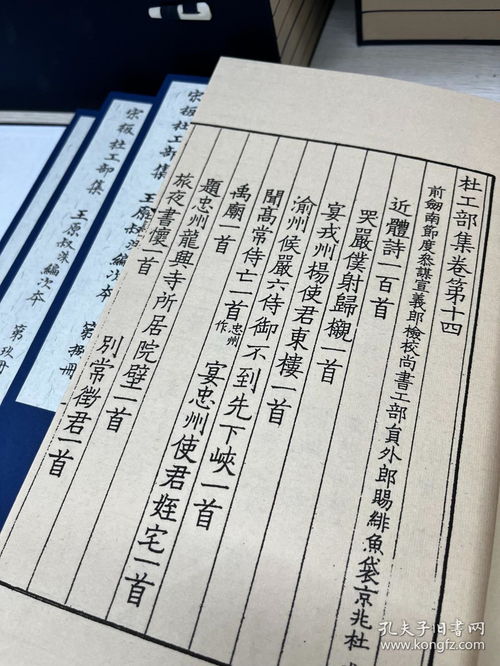 杜工部集卷第十四
前劒南節度參謀宣義郎檢校尚書工部貟外郎賜緋魚袋京兆杜
近體詩一百首
哭嚴僕射歸櫬一首
宴戎州楊使君東樓一首
渝州候嚴六侍御不到先下峽一首
聞髙常侍亡一首忠州作 宴忠州使君姪宅一首
禹廟一首
題忠州龍興寺所居院壁一首
旅夜書懷一首 別常徵君一首
宋板杜工部集 王原叔洙編次本 第捌册
宋板杜工部集 王原叔洙編次本 第玖册
孔夫子旧书网
www.kongfz.com